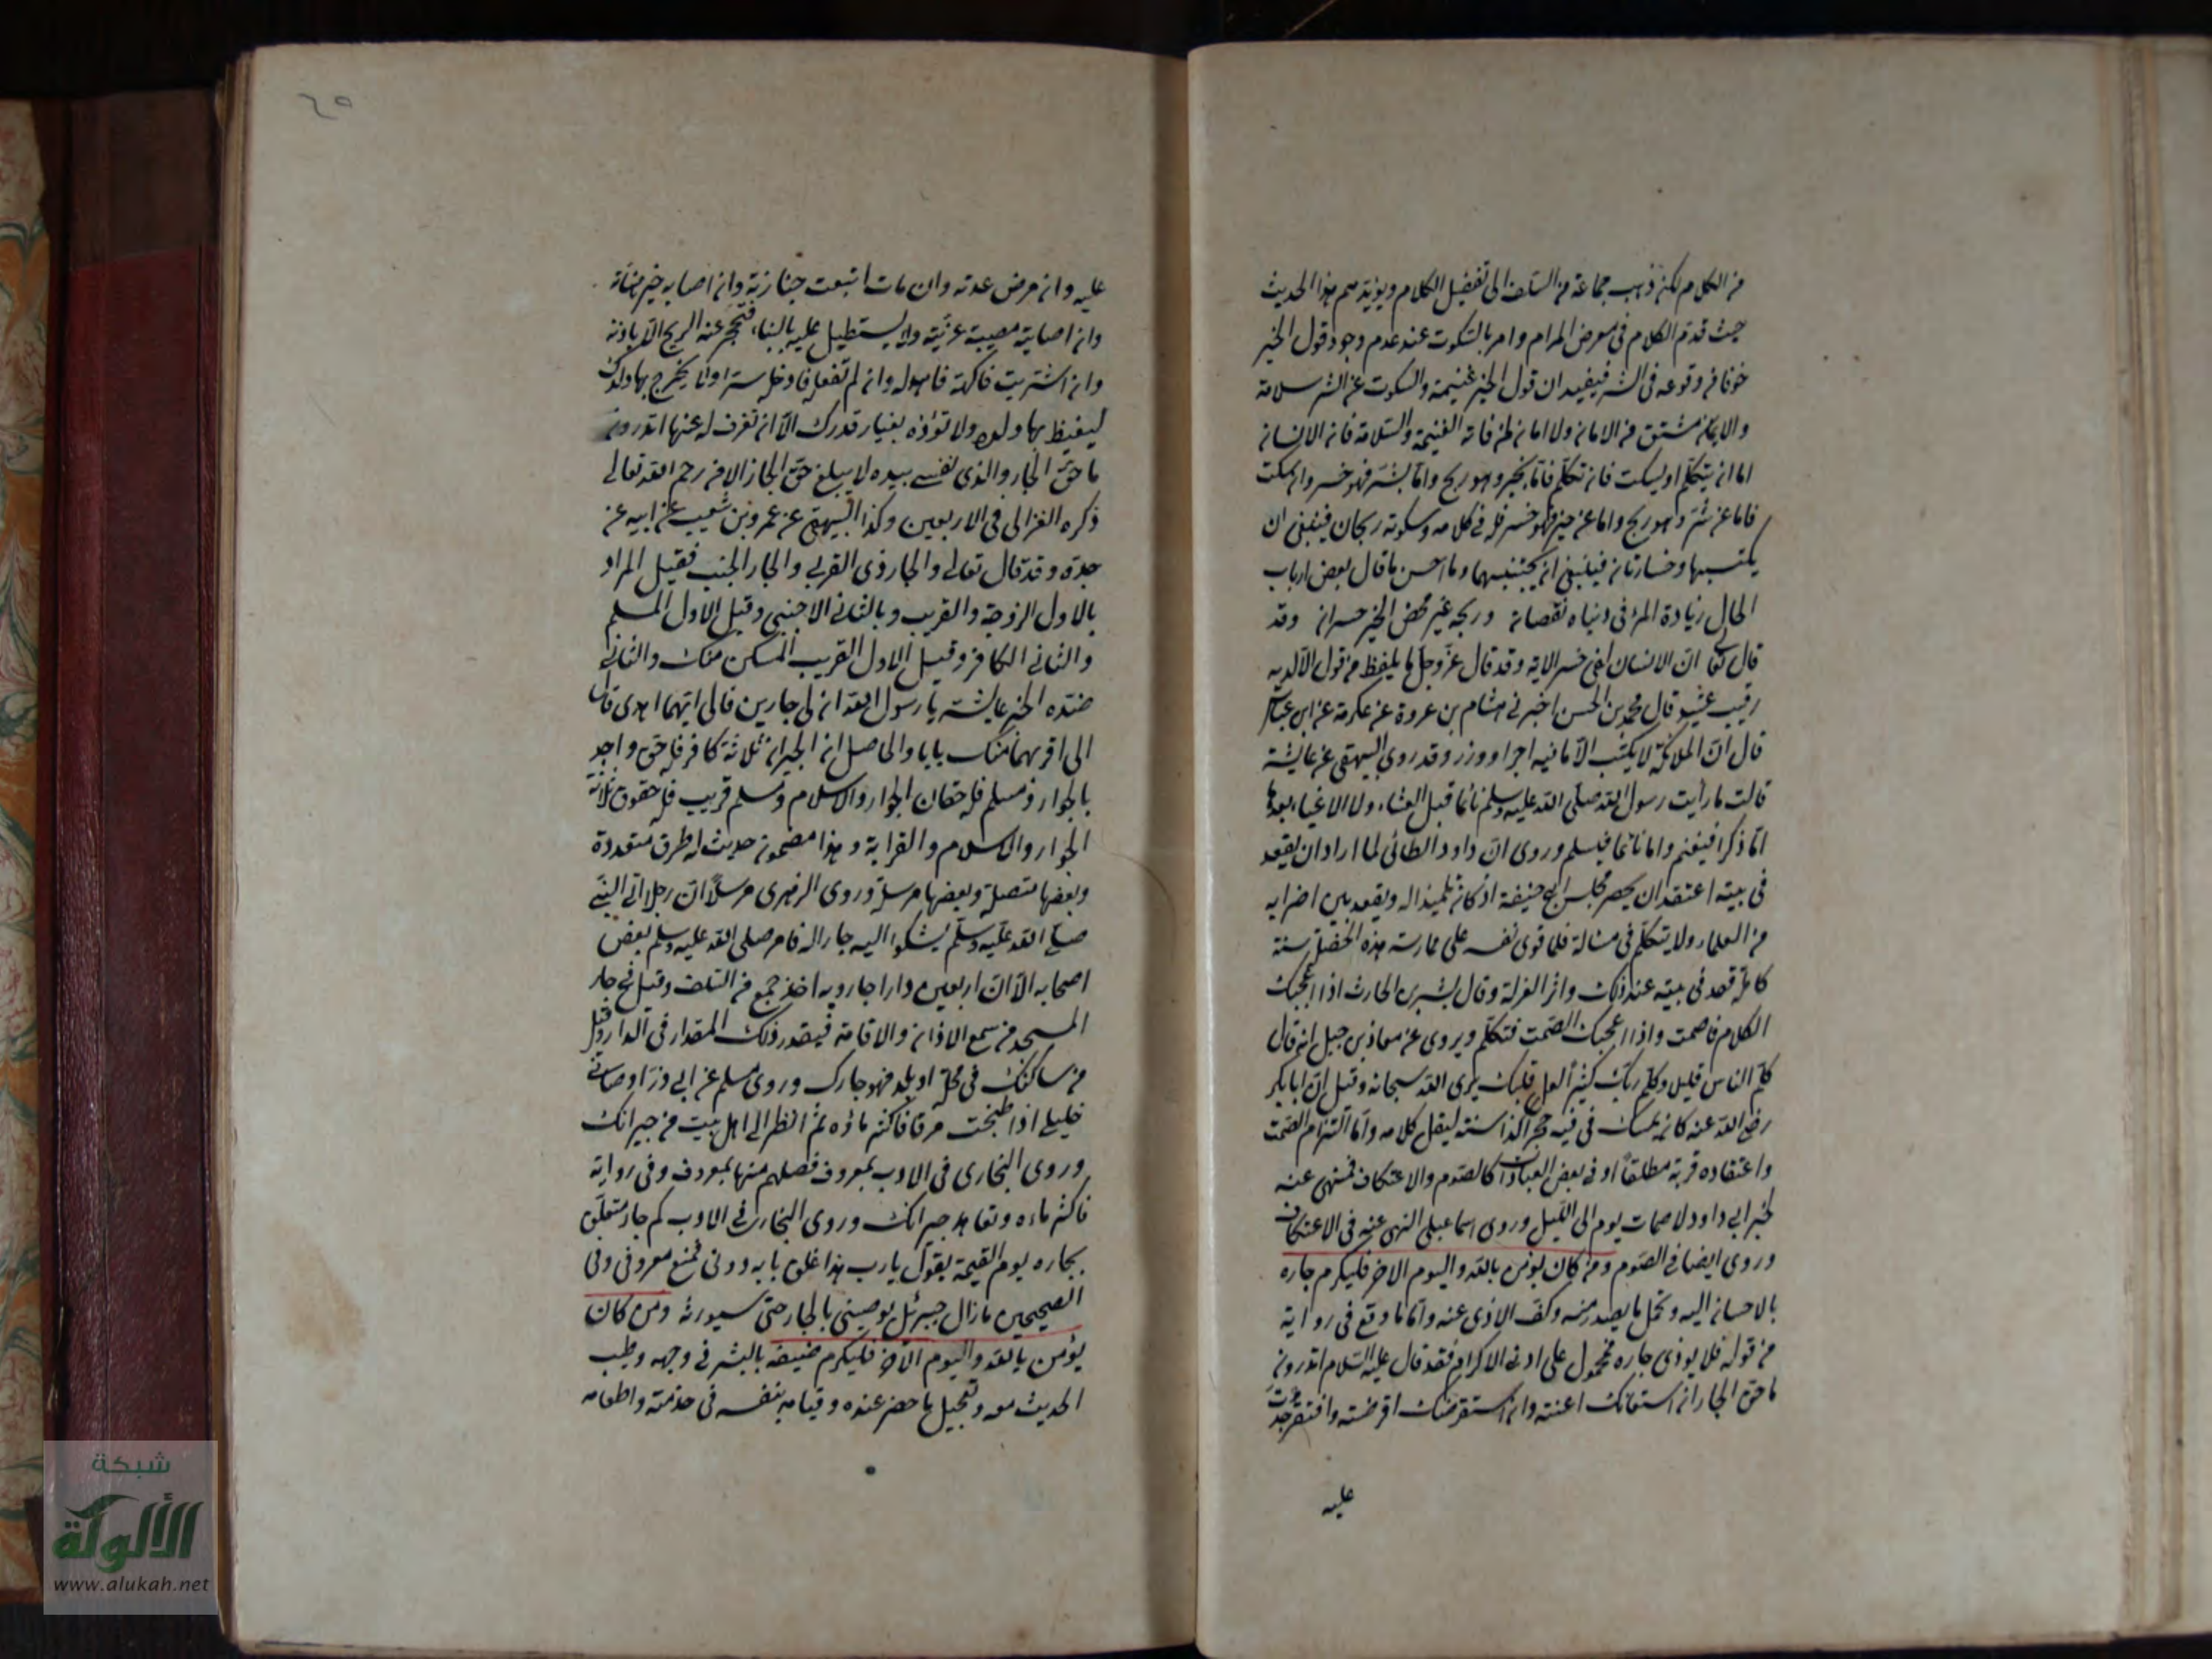 من الكلام لكن ذهب جماعة من السلف الى تفضيل الكلام ويؤيدهم هذا الحديث
حيث قدم الكلام في معرض المرام وامر بالسكوت عند عدم وجود قول الخير
خوفا من وقوعه في الشر فيفيد ان قول الخير غنيمة والسكوت عن الشر سلامة
والايمان مشتق من الامان ولا امان لمن فاته الغنيمة والسلامة فان الانسان
اما ان يتكلم او يسكت فان تكلم فاما بخير وهو ربح واما بشر فهو خسر وان سكت
فاما عن شر وهو ربح واما عن خير فهو خسر فله في كلامه وسكوته ربحان فينبغي ان
يكتسبهما وخسارتان فينبغي ان يجتنبهما وما احسن ما قال بعض ارباب
الحال زيادة المرء في دنياه نقصان وربحه غير محض الخير خسران وقد
قال تعا ان الانسان لفي خسر الاية وقد قال عز وجل ما يلفظ من قول الا لديه
رقيب عتيد وقال محمد بن الحسن اخبرني هشام بن عروة عن عكرمة عن ابن عباس
قال ان الملائكة لا يكتب الا ما فيه اجر او وزر وقد روى البيهقي عن عايشة
قالت ما رأيت رسول الله صلى الله عليه وسلم نائما قبل العشاء ولا لاغيا بعدها
اما ذاكرا فيغنم واما نائما فيسلم وروى ان داود الطائي لما اراد ان يقعد
في بيته اعتقد ان يحضر مجلس ابي حنيفة اذ كان تلميذا له ويقعد بين اضرابه
من العلماء ولا يتكلم في مسالة فلما قوى نفسه على ممارسة هذه الخصلة سنة
كاملة قعد في بيته عند ذلك واثر العزلة وقال بشر بن الحارث اذا اعجبك
الكلام فاصمت واذا اعجبك الصمت فتكلم ويروى عن معاذ بن جبل انه قال
كلم الناس قليلا وكلم ربك كثيرا لعل قلبك يرى الله سبحانه وقيل ان ابا بكر
رضي الله عنه كان يمسك في فيه حجرا كذا سنة ليقل كلامه واما التزام الصمت
واعتقاده قربة مطلقا او في بعض العبادات كالصوم والاعتكاف فمنهى عنه
لخبر ابي داود لا صمات يوم الى الليل وروى اسماعيلي النهي عنه في الاعتكاف
وروى ايضا في الصوم ومن كان يؤمن بالله واليوم الاخر فليكرم جاره
بالاحسان اليه وتحمل ما يصدر منه وكف الاذى عنه واما ما وقع في رواية
من قوله فلا يوذي جاره فمحمول على ادنى الاكرام فقد قال عليه السلام اتدرون
ما حق الجار ان استعانك اعنته وان استقرضك اقرضته وان افتقر جدت
عليه
٦٥
عليه وان مرض عدته وان مات اتبعت جنازته وان اصابه خير هنأته
وان اصابته مصيبة عزيته ولا يستطيل عليه بالبناء فتحجر عنه الريح الا باذنه
وان اشتريت فاكهة فاهد له وان لم تفعل فادخلها سرا ولا يخرج بها ولدك
ليغيظ بها ولده ولا تؤذه بغبار قدرك الا ان تغرف له عنها اتدرون
ما حق الجار والذي نفسي بيده لا يبلغ حق الجار الا من رحم الله تعالى
ذكره الغزالي في الاربعين وكذا البيهقي عن عمرو بن شعيب عن ابيه عن
جده وقد قال تعالى والجار ذي القربى والجار الجنب فقيل المراد
بالاول الزوجة والقريب وبالثاني الاجنبي وقيل الاول المسلم
والثاني الكافر وقيل الاول القريب المسكن منك والثاني
ضده الخبر عايشة يا رسول الله ان لي جارين فالى ايهما اهدى قال
الى اقربهما منك بابا والحاصل ان الجيران ثلاثة كافر فله حق واحد
بالجوار ومسلم فله حقان الجوار والاسلام ومسلم قريب فله حقوق ثلاثة
الجوار والاسلام والقرابة وهذا مضمون حديث له طرق متعددة
وبعضها متصلة وبعضها مرسلة وروى الزهري مرسلا ان رجلا اتى النبي
صلى الله عليه وسلم يشكوا اليه جارا له فامر صلى الله عليه وسلم بعض
اصحابه الا ان اربعين دارا جار وبه اخذ جمع من السلف وقيل في جار
المسجد من سمع الاذان والاقامة فيقدر ذلك المقدار في الدار وقيل
من ساكنك في محلة او بلد فهو جارك وروى مسلم عن ابي ذر اوصاني
خليلي اذا طبخت مرقا فاكثر ماؤه ثم انظر الى اهل بيت من جيرانك
وروى البخاري في الادب بمعروف فصلهم منها بمعروف وفي رواية
فاكثر ماءه وتعاهد جيرانك وروى البخاري في الادب كم جار متعلق
بجاره يوم القيمة يقول يا رب هذا غلق بابه دوني فمنع معروفه وفي
الصحيحين ما زال جبرئل يوصيني بالجار حتى سيورثه ومن كان
يؤمن بالله واليوم الاخر فليكرم ضيفه بالبشر في وجهه وطيب
الحديث معه وتعجيل ما حضر عنده وقيامه بنفسه في خدمته واطعامه
شبكة
الألوكة
www.alukah.net